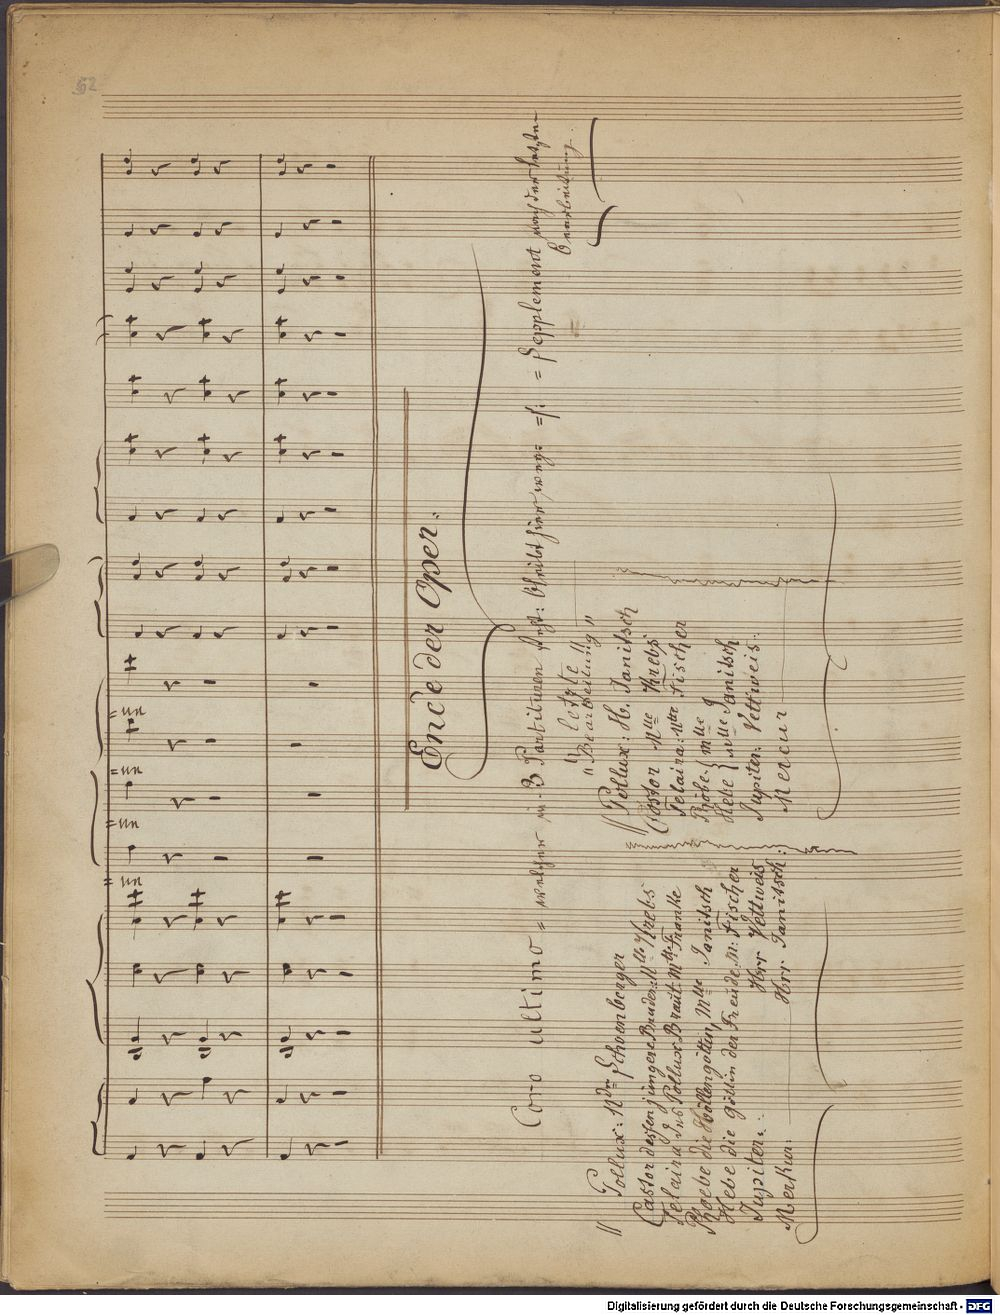 52
Ende der Oper.
Coro ultimo = welcher in 3 Partituren steht: bleibt hier weg: = Supplement nach der letzten
Bearbeitung.
"letzte
"Bearbeitung"
Pollux: Mdm Schoenberger
Castor dessen jüngerer Bruder: Mlle Krebs
Telaira des Pollux Braut: Mlle Franke
Phoebe die Höllengöttin, Mlle Janitsch
Hebe die Göttin der Freude: M: Fischer
Jupiter: Hrr Vettweis
Merkur: Hrr Janitsch:
Pollux: H. Janitsch
Castor Mlle Krebs
Telaira: Mlle Fischer
Phöbe { Mlle J
Hebe { Mlle Janitsch
Jupiter: Vettweis.
Mercur
Digitalisierung gefördert durch die Deutsche Forschungsgemeinschaft - DFG